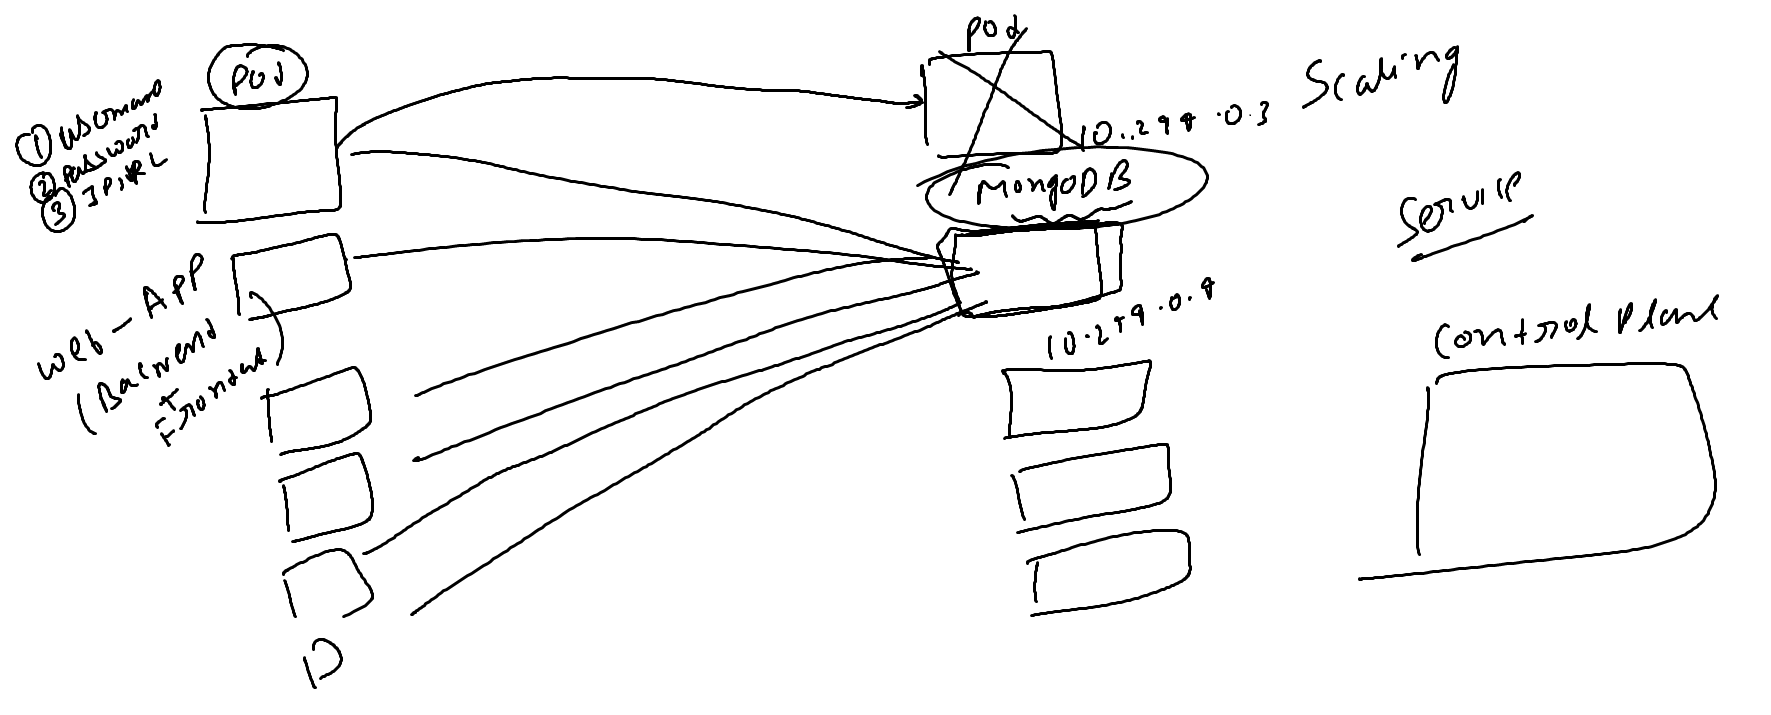 Pod
① Username
② Password
③ IP, URL
Web-App
(Backend
+
Frontend)
Pod
10.244.0.3
MongoDB
10.244.0.4
Scaling
Service
Control Plane